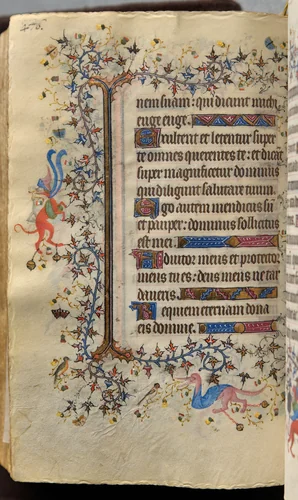 nem suam: qui dicunt michi
euge euge.
Exultent et letentur super
te omnes querentes te: et dicant
super magnificetur dominus
qui diligunt salutare tuum.
Ego autem mendicus su
et pauper: dominus sollicitus
est mei.
Adiutor meus et protector
meus tu es: deus meus ne tar
daueris.
Requiem eternam dona
eis domine.